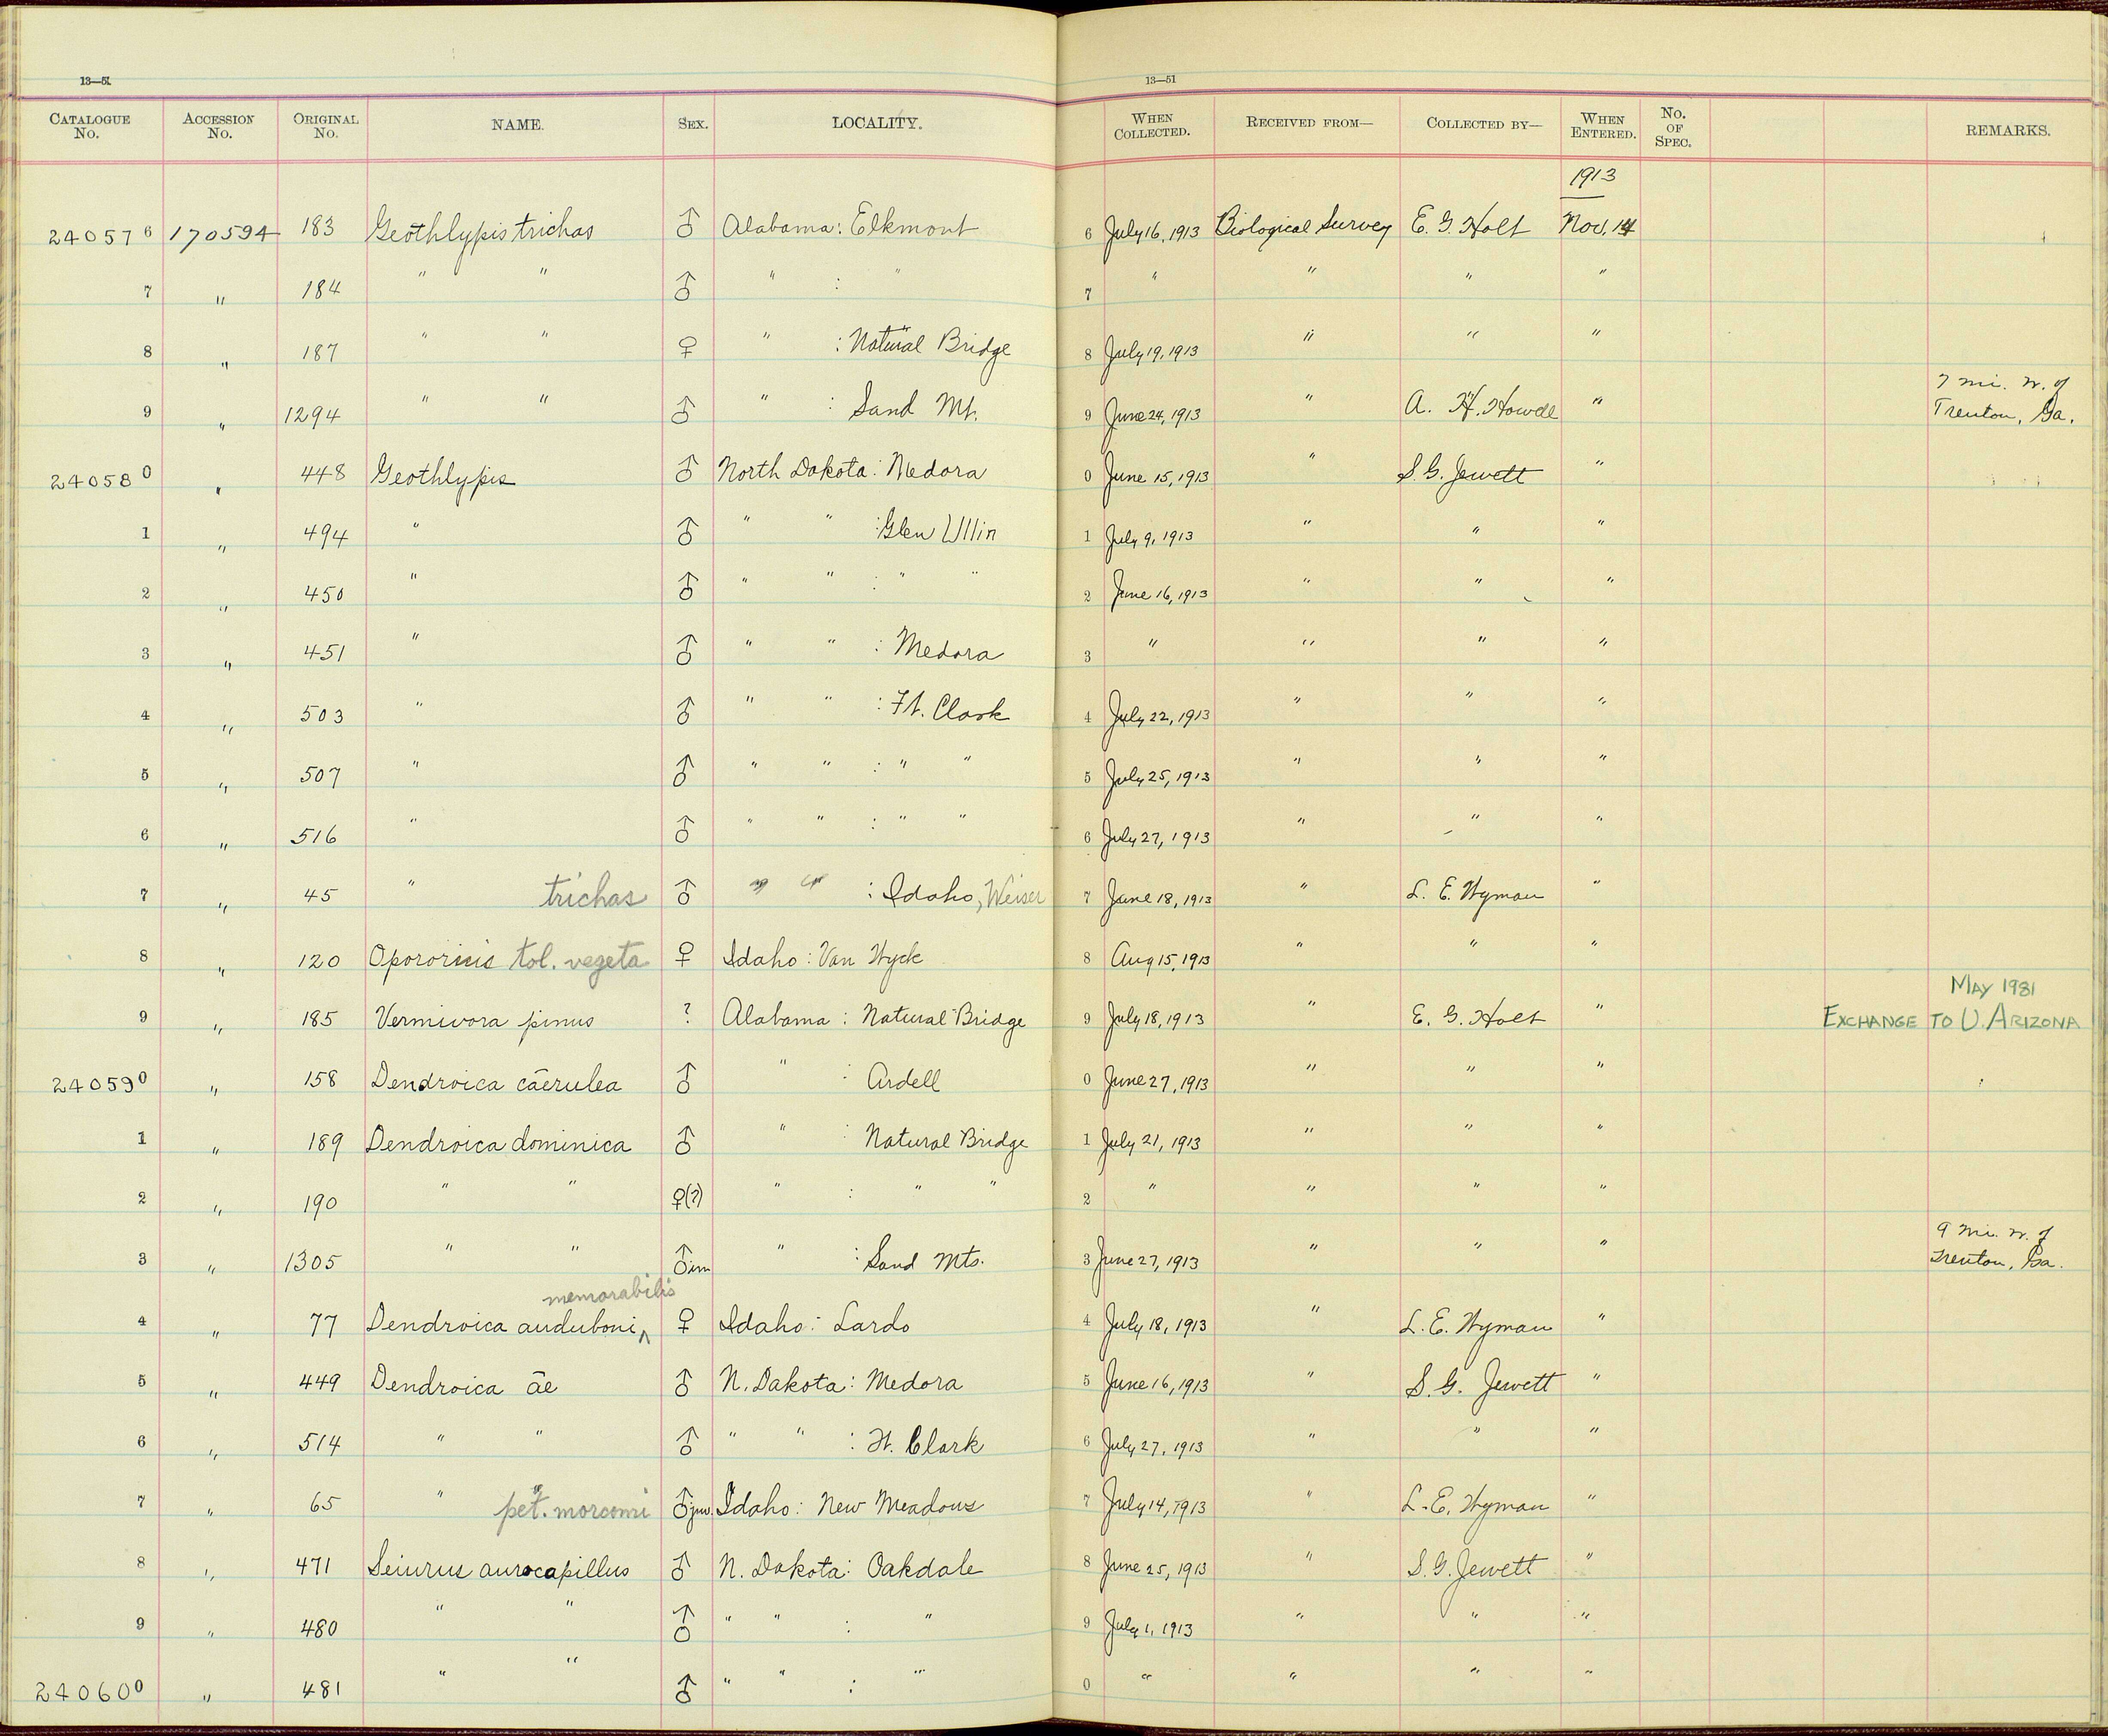 13—51 13—51
CATALOGUE No. ACCESSION No. ORIGINAL No. NAME. SEX. LOCALITY. WHEN COLLECTED. RECEIVED FROM— COLLECTED BY— WHEN ENTERED. No. OF SPEC. REMARKS.
1913
240576 170594 183 Geothlypis trichas ♂ Alabama: Elkmont 6 July 16, 1913 Biological Survey E. G. Holt Nov. 14
7 " 184 " " ♂ " : " 7 " " " "
8 " 187 " " ♀ " : Natural Bridge 8 July 19, 1913 " " "
9 " 1294 " " ♂ " : Sand Mt. 9 June 24, 1913 " A. H. Howell " 7 mi. W. of Trenton, Ga.
240580 " 448 Geothlypis ♂ North Dakota: Medora 0 June 15, 1913 " S. G. Jewett "
1 " 494 " ♂ " " : Glen Ullin 1 July 9, 1913 " " "
2 " 450 " ♂ " " : " " 2 June 16, 1913 " " "
3 " 451 " ♂ " " : Medora 3 " " " "
4 " 503 " ♂ " " : Ft. Clark 4 July 22, 1913 " " "
5 " 507 " ♂ " " : " " 5 July 25, 1913 " " "
6 " 516 " ♂ " " : " " 6 July 27, 1913 " " "
7 " 45 " trichas ♂ : Idaho, Weiser 7 June 18, 1913 " L. E. Wyman "
8 " 120 Oporornis tol. vegeta ♀ Idaho: Van Wyck 8 Aug 15, 1913 " " "
9 " 185 Vermivora pinus ? Alabama: Natural Bridge 9 July 18, 1913 " E. G. Holt " MAY 1981 EXCHANGE TO U. ARIZONA
240590 " 158 Dendroica cāerulea ♂ " : Ardell 0 June 27, 1913 " " "
1 " 189 Dendroica dominica ♂ " : Natural Bridge 1 July 21, 1913 " " "
2 " 190 " " ♀(?) " : " " 2 " " " "
3 " 1305 " " ♂im " : Sand Mts. 3 June 27, 1913 " " " 9 mi. W. of Trenton, Ga.
4 " 77 Dendroica auduboni memorabilis ♀ Idaho: Lardo 4 July 18, 1913 " L. E. Wyman "
5 " 449 Dendroica āe ♂ N. Dakota: Medora 5 June 16, 1913 " S. G. Jewett "
6 " 514 " " ♂ " " : Ft. Clark 6 July 27, 1913 " " "
7 " 65 " pet. morcomi ♂juv. Idaho: New Meadows 7 July 14, 1913 " L. E. Wyman "
8 " 471 Seiurus aurocapillus ♂ N. Dakota: Oakdale 8 June 25, 1913 " S. G. Jewett "
9 " 480 " " ♂ " " : " 9 July 1, 1913 " " "
240600 " 481 " " ♂ " " : " 0 " " " "